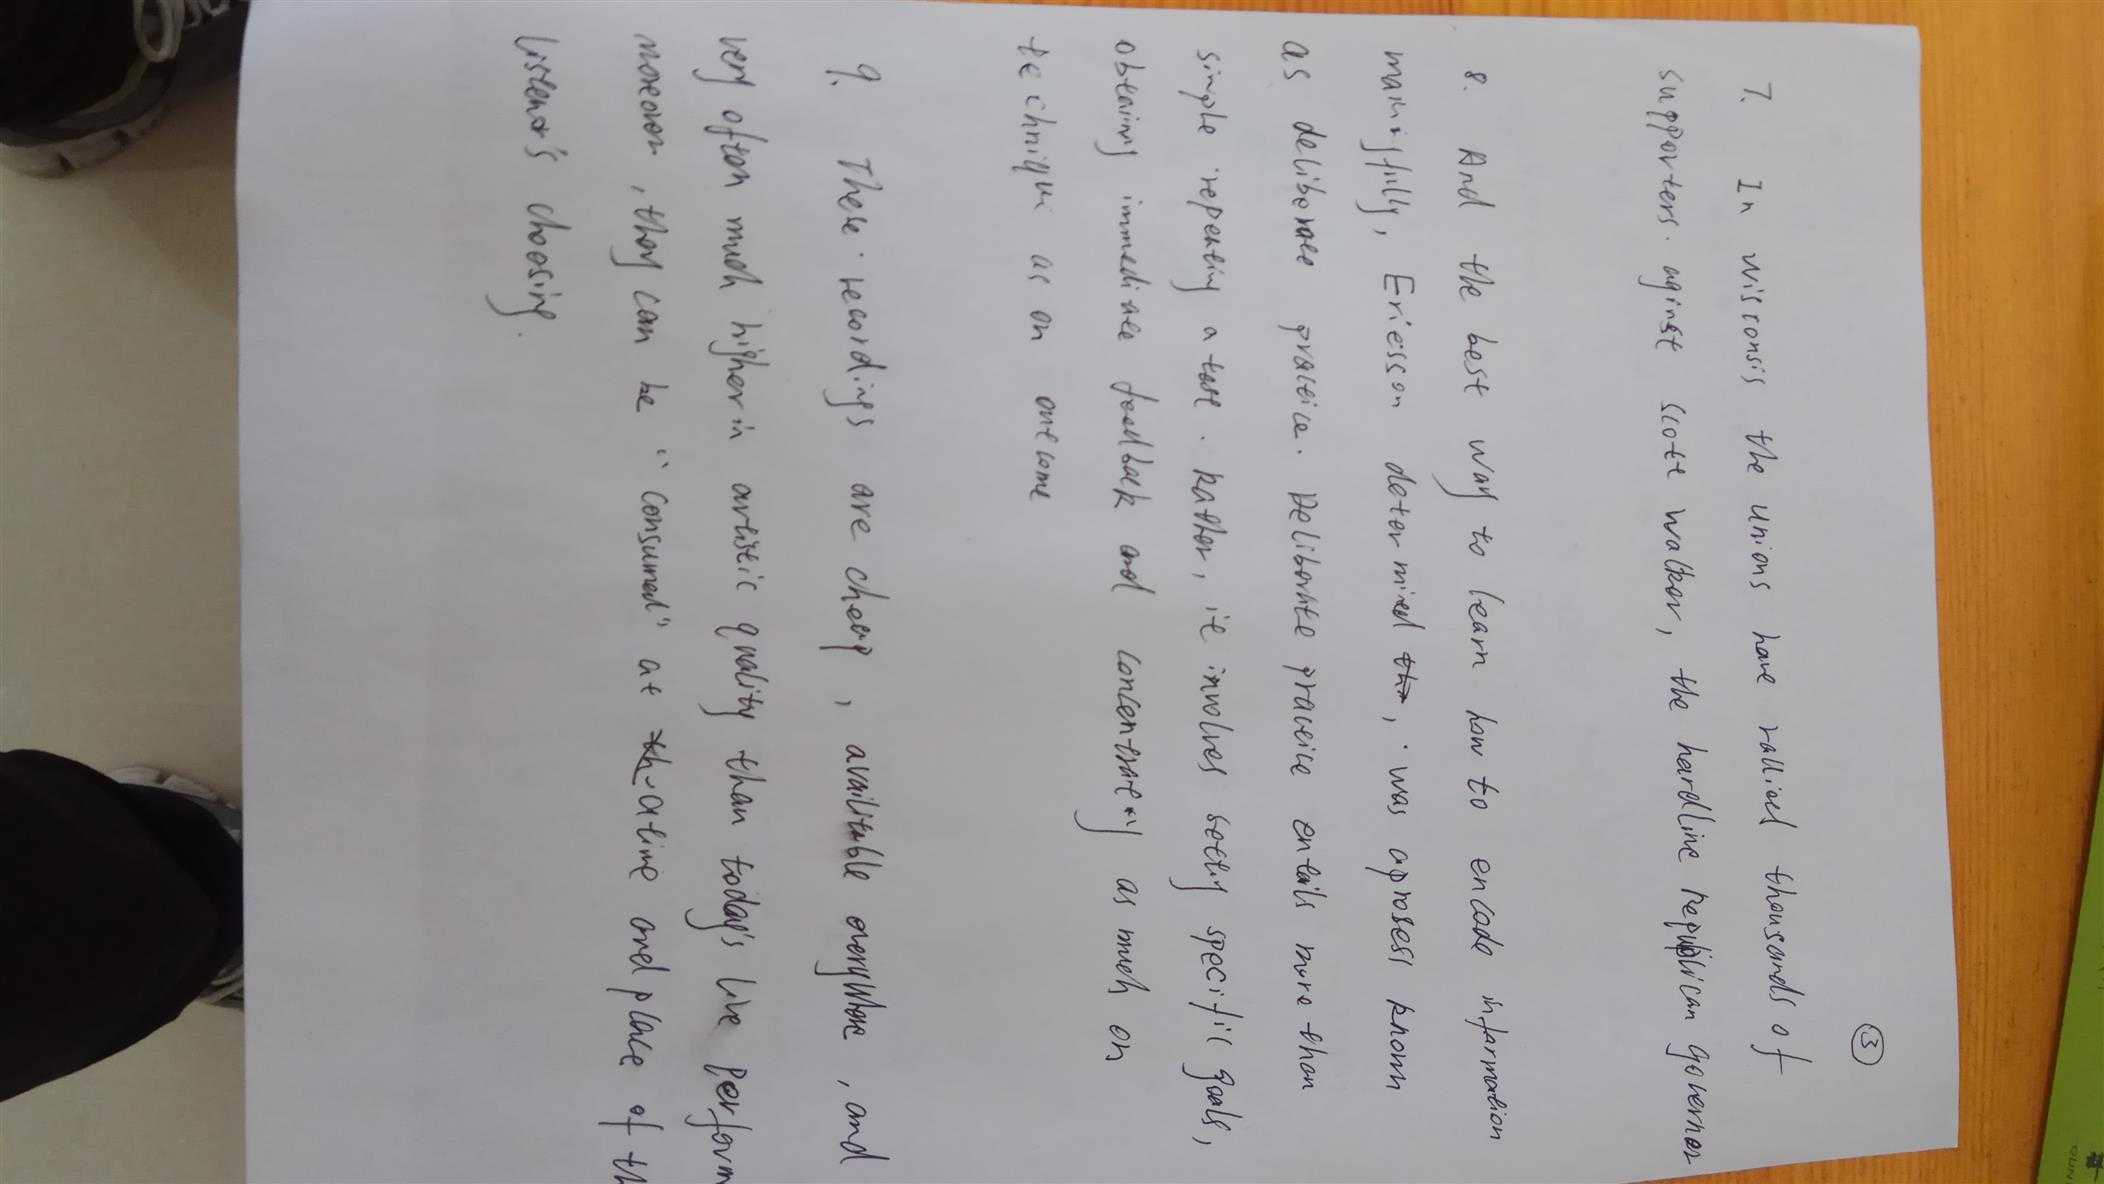 ③
7. In wisconsis the unions have rallied thousands of
supporters. aginst scott walker, the hardline republican governor
8. And the best way to learn how to encode information
Eriesson determined, was aprosess known
as deliberate practice. Deliborate pravcice entails more than
simple repeating a task. Rather, it involves setting specific goals,
obtaining immediate feedback and concentrating as much on
technique as on outcome
9. These recordings are cheap, available everywhere, and
very often much higher in artistic quality than today's live perform
moreover, they can be "consumed" at a time and place of th
listener's choosing.